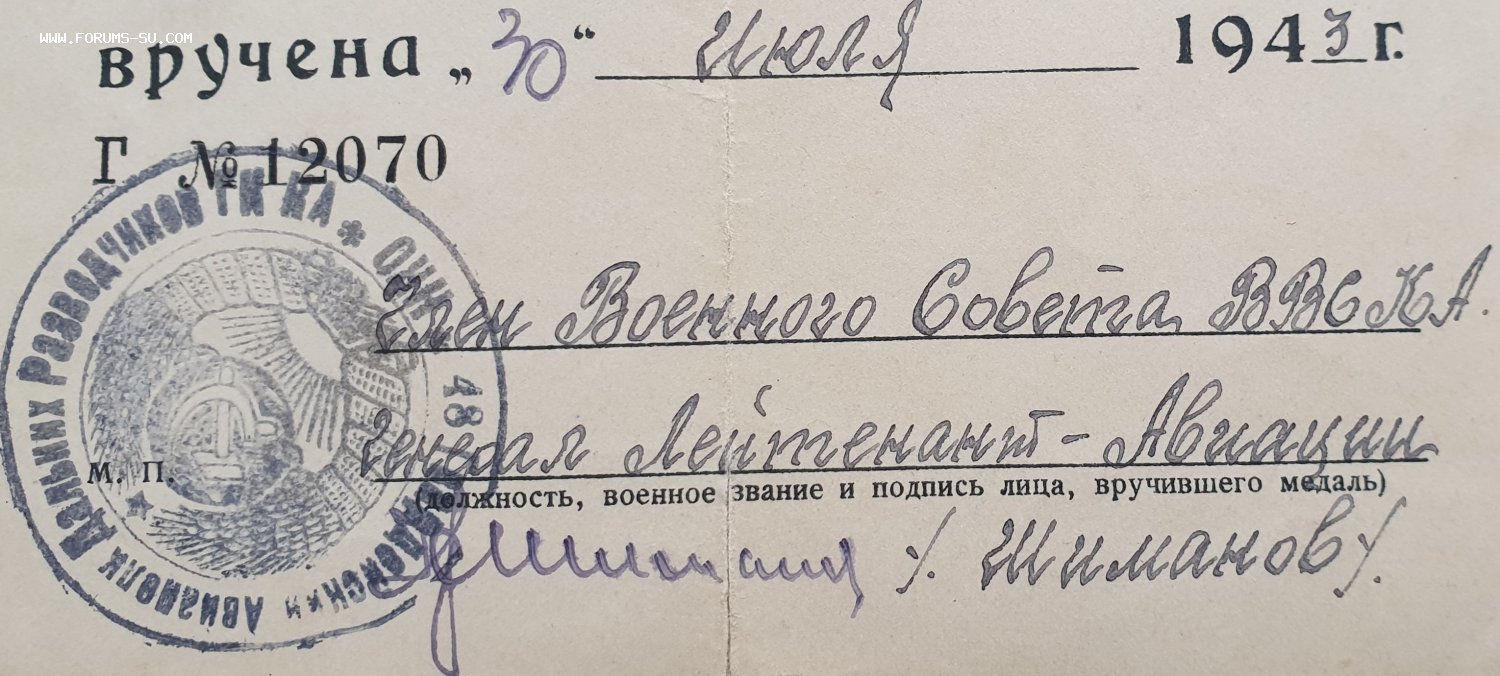 WWW.FORUMS-SU.COM
вручена „30“ Июля 1943 г.
Г № 12070
Член Военного Совета ВВС КА.
Генерал Лейтенант-Авиации
М. П.
(должность, военное звание и подпись лица, вручившего медаль)
/. Шиманов/.
Дальних Разведчиков ГК КА * НКО
48
Авиаполк